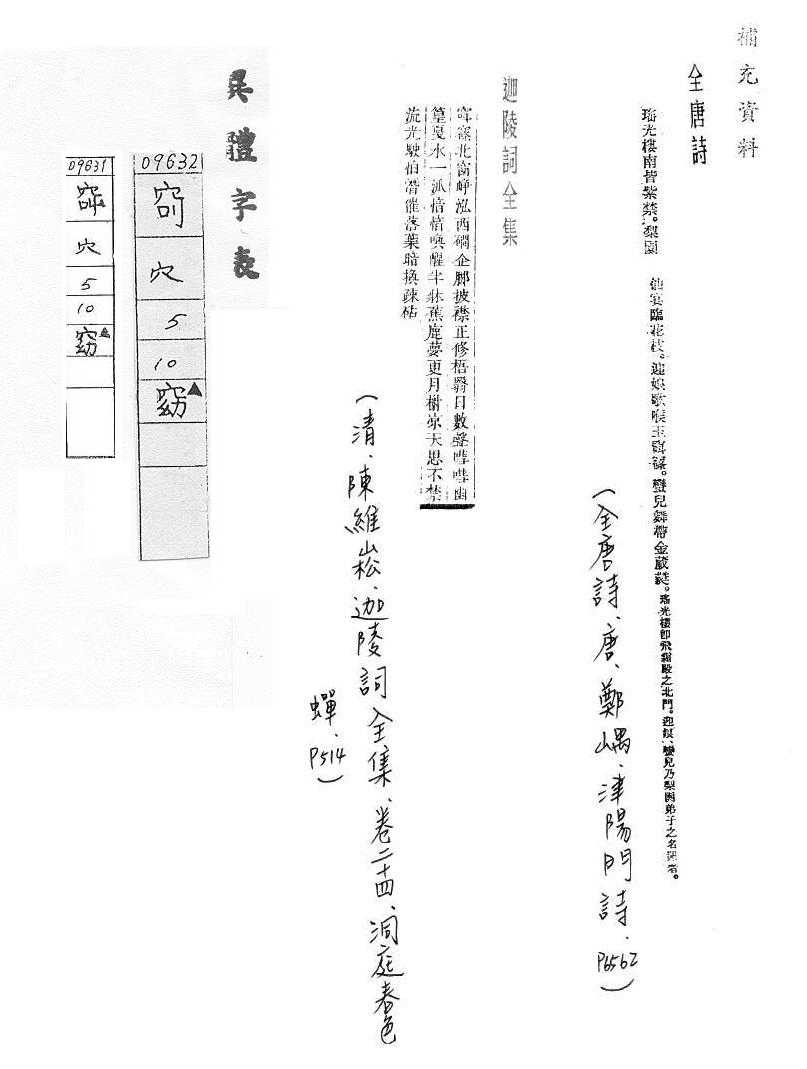 補充資料
全唐詩
瑤光樓南皆紫禁。梨園仙宴臨花枝。迎娘歌喉玉。蠻兒舞帶金葳蕤。瑤光樓即飛霜殿之北門。迎娘、蠻兒乃梨園弟子之名聞者。
(全唐詩、唐、鄭嵎、津陽門詩、P6562)
迦陵詞全集
北窗崢泓西磵企腳披襟正修梧翳日數聲嘒嘒幽
篁戛水一派愔愔喚醒半牀蕉鹿夢更月榭涼天思不禁
流光駛怕潛催落葉暗換疎砧
(清、陳維崧、迦陵詞全集、卷二十四、洞庭春色
蟬、P514)
異體字表
09632
穴
5
10
窈▲
09631
穴
5
10
窈▲